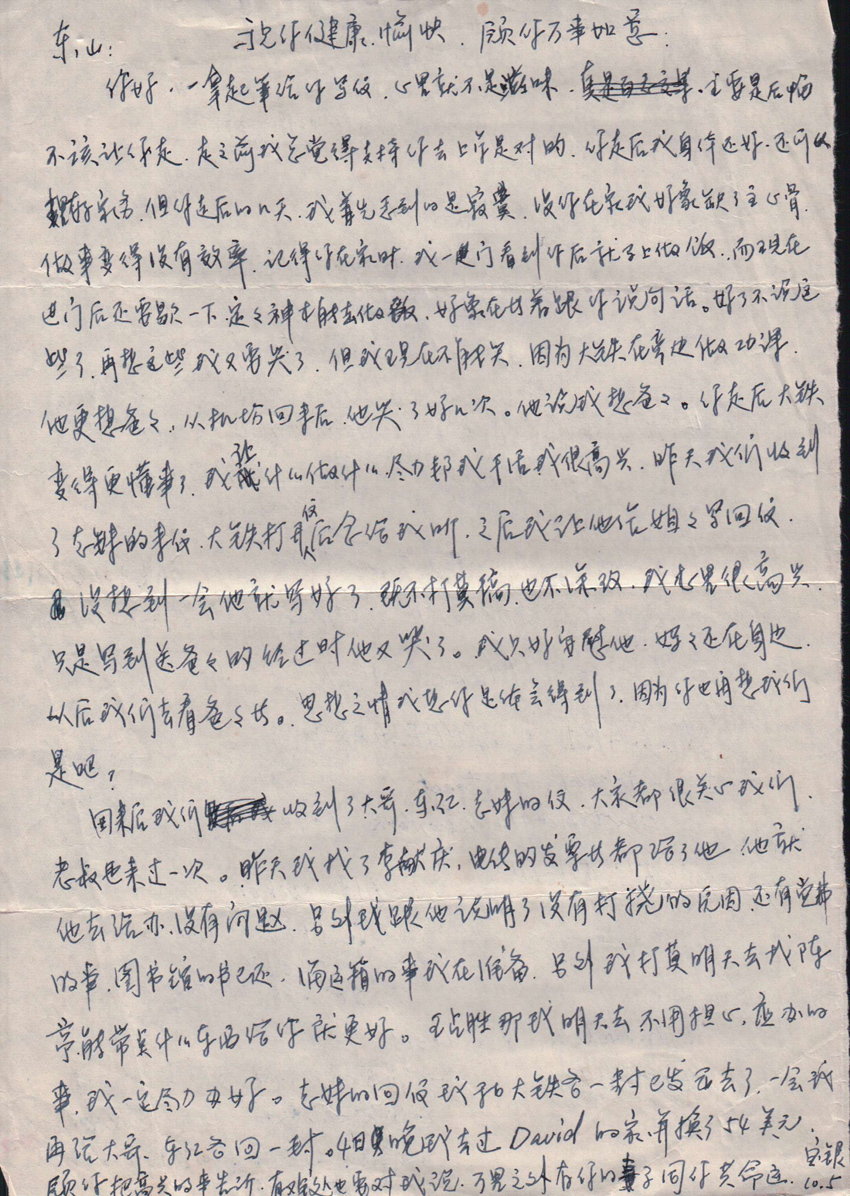 东山： 祝你健康.愉快.愿你万事如意.
你好，一拿起笔给你写信，心里就不是滋味，主要是后悔
不该让你走，走之前我总觉得支持你去上作是对的，你走后我身体还好，还可以
家务，但你走后的几天，我首先感到的是寂寞，没你在家我好象缺了主心骨，
做事变得没有效率，记得你在家时，我一进门看到你后就马上做饭，而现在
进门后还要歇一下，定々神才能去做饭，好象在也着跟你说句话。好了不说这
些了，再想这些我又要哭了，但我现在不能哭，因为大铁在旁边做功课，
他更想爸々，从机场回来后，他哭了好几次。他说我想爸々。你走后大铁
变得更懂事了，我让什么做什么，尽力帮我干活我很高兴，昨天我们收到
了志妹的来信，大铁打开信后念给我听，之后我让他给姐々写回信，
没想到一会他就写好了，既不打草稿，也不涂改，我心里很高兴，
只是写到送爸々的经过时他又哭了。我只好安慰他，妈々还在身边，
以后我们去看爸々去。思想之情我想你是体会得到了，因为你也再想我们
是吧？
回来后我们收到了大哥、东仁、志妹的信，大家都很关心我们，
老叔也来过一次。昨天我找了李献庆，电传的发票也都给了他，他就
他去给办，没有问题，另外我跟他说明了没有打搅的原因，还有党弟
的事，图书馆的书已还，海运箱的事我在准备，另外我打算明天去找陈
亭，能带点什么东西给你就更好。王占胜那我明天去不用担心，应办的
事，我一定尽力办好。志妹的回信我和大铁各一封已发出去了，一会我
再给大哥、东仁各回一封。4日晚我去过David的家，并换了54美元，
愿你把高兴的事告诉，有难处也要对我说，万里之外有你的妻子同你共命运. 宝银
10.5